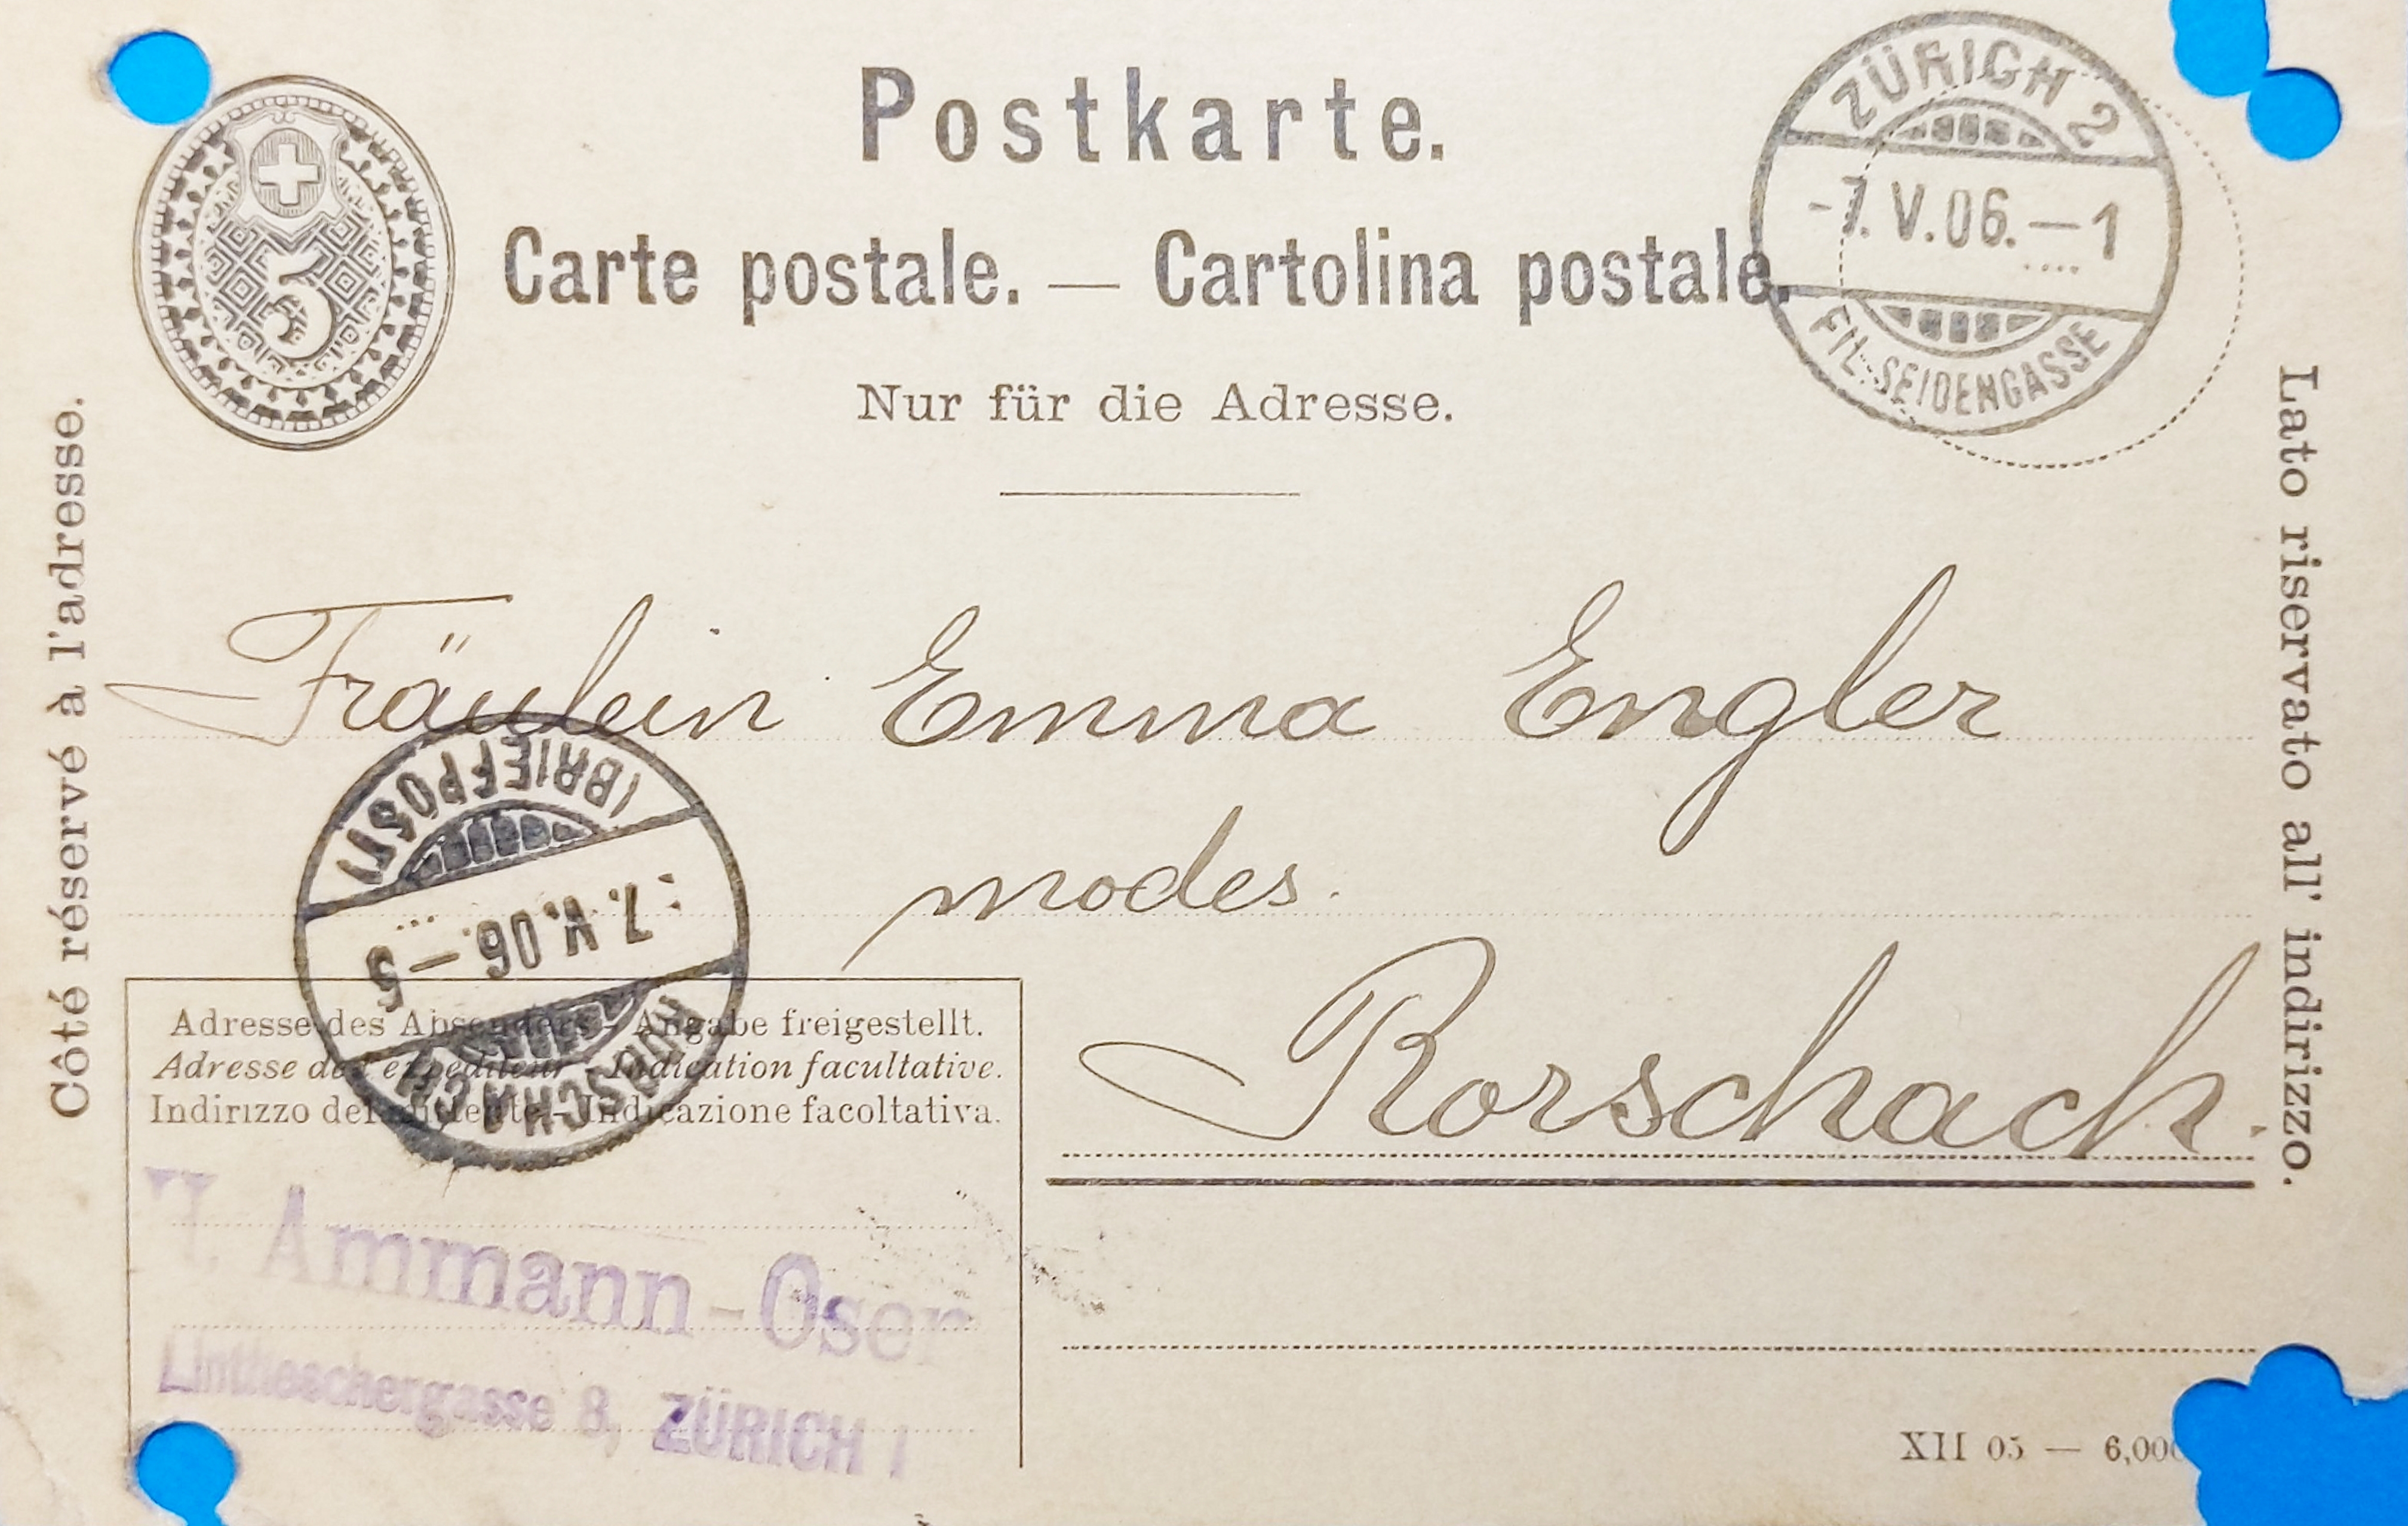 Postkarte.
Carte postale. — Cartolina postale.
Nur für die Adresse.
Côté réservé à l'adresse.
Lato riservato all' indirizzo.
5
ZÜRICH 2
-7. V. 06. — 1
FIL. SEIDENGASSE
Fräulein Emma Engler
modes.
Rorschach.
(BRIEFPOST)
7. V. 06. — 5
RORSCHACH
Adresse des Absenders - Angabe freigestellt.
Adresse de l'expéditeur - Indication facultative.
Indirizzo del mittente - Indicazione facoltativa.
Ammann-Oser
Lintheschergasse 8, ZÜRICH I
XII 05 — 6,000